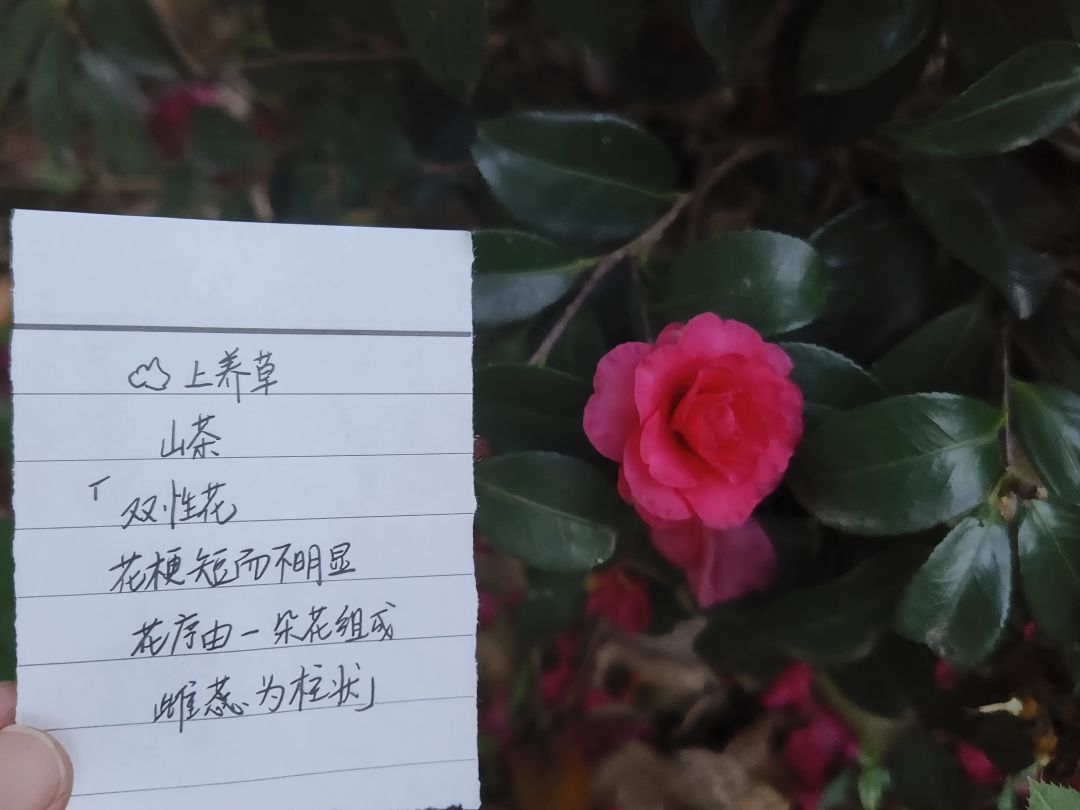 上养草
山茶
「双性花
花梗短而不明显
花序由一朵花组成
雌蕊为柱状」